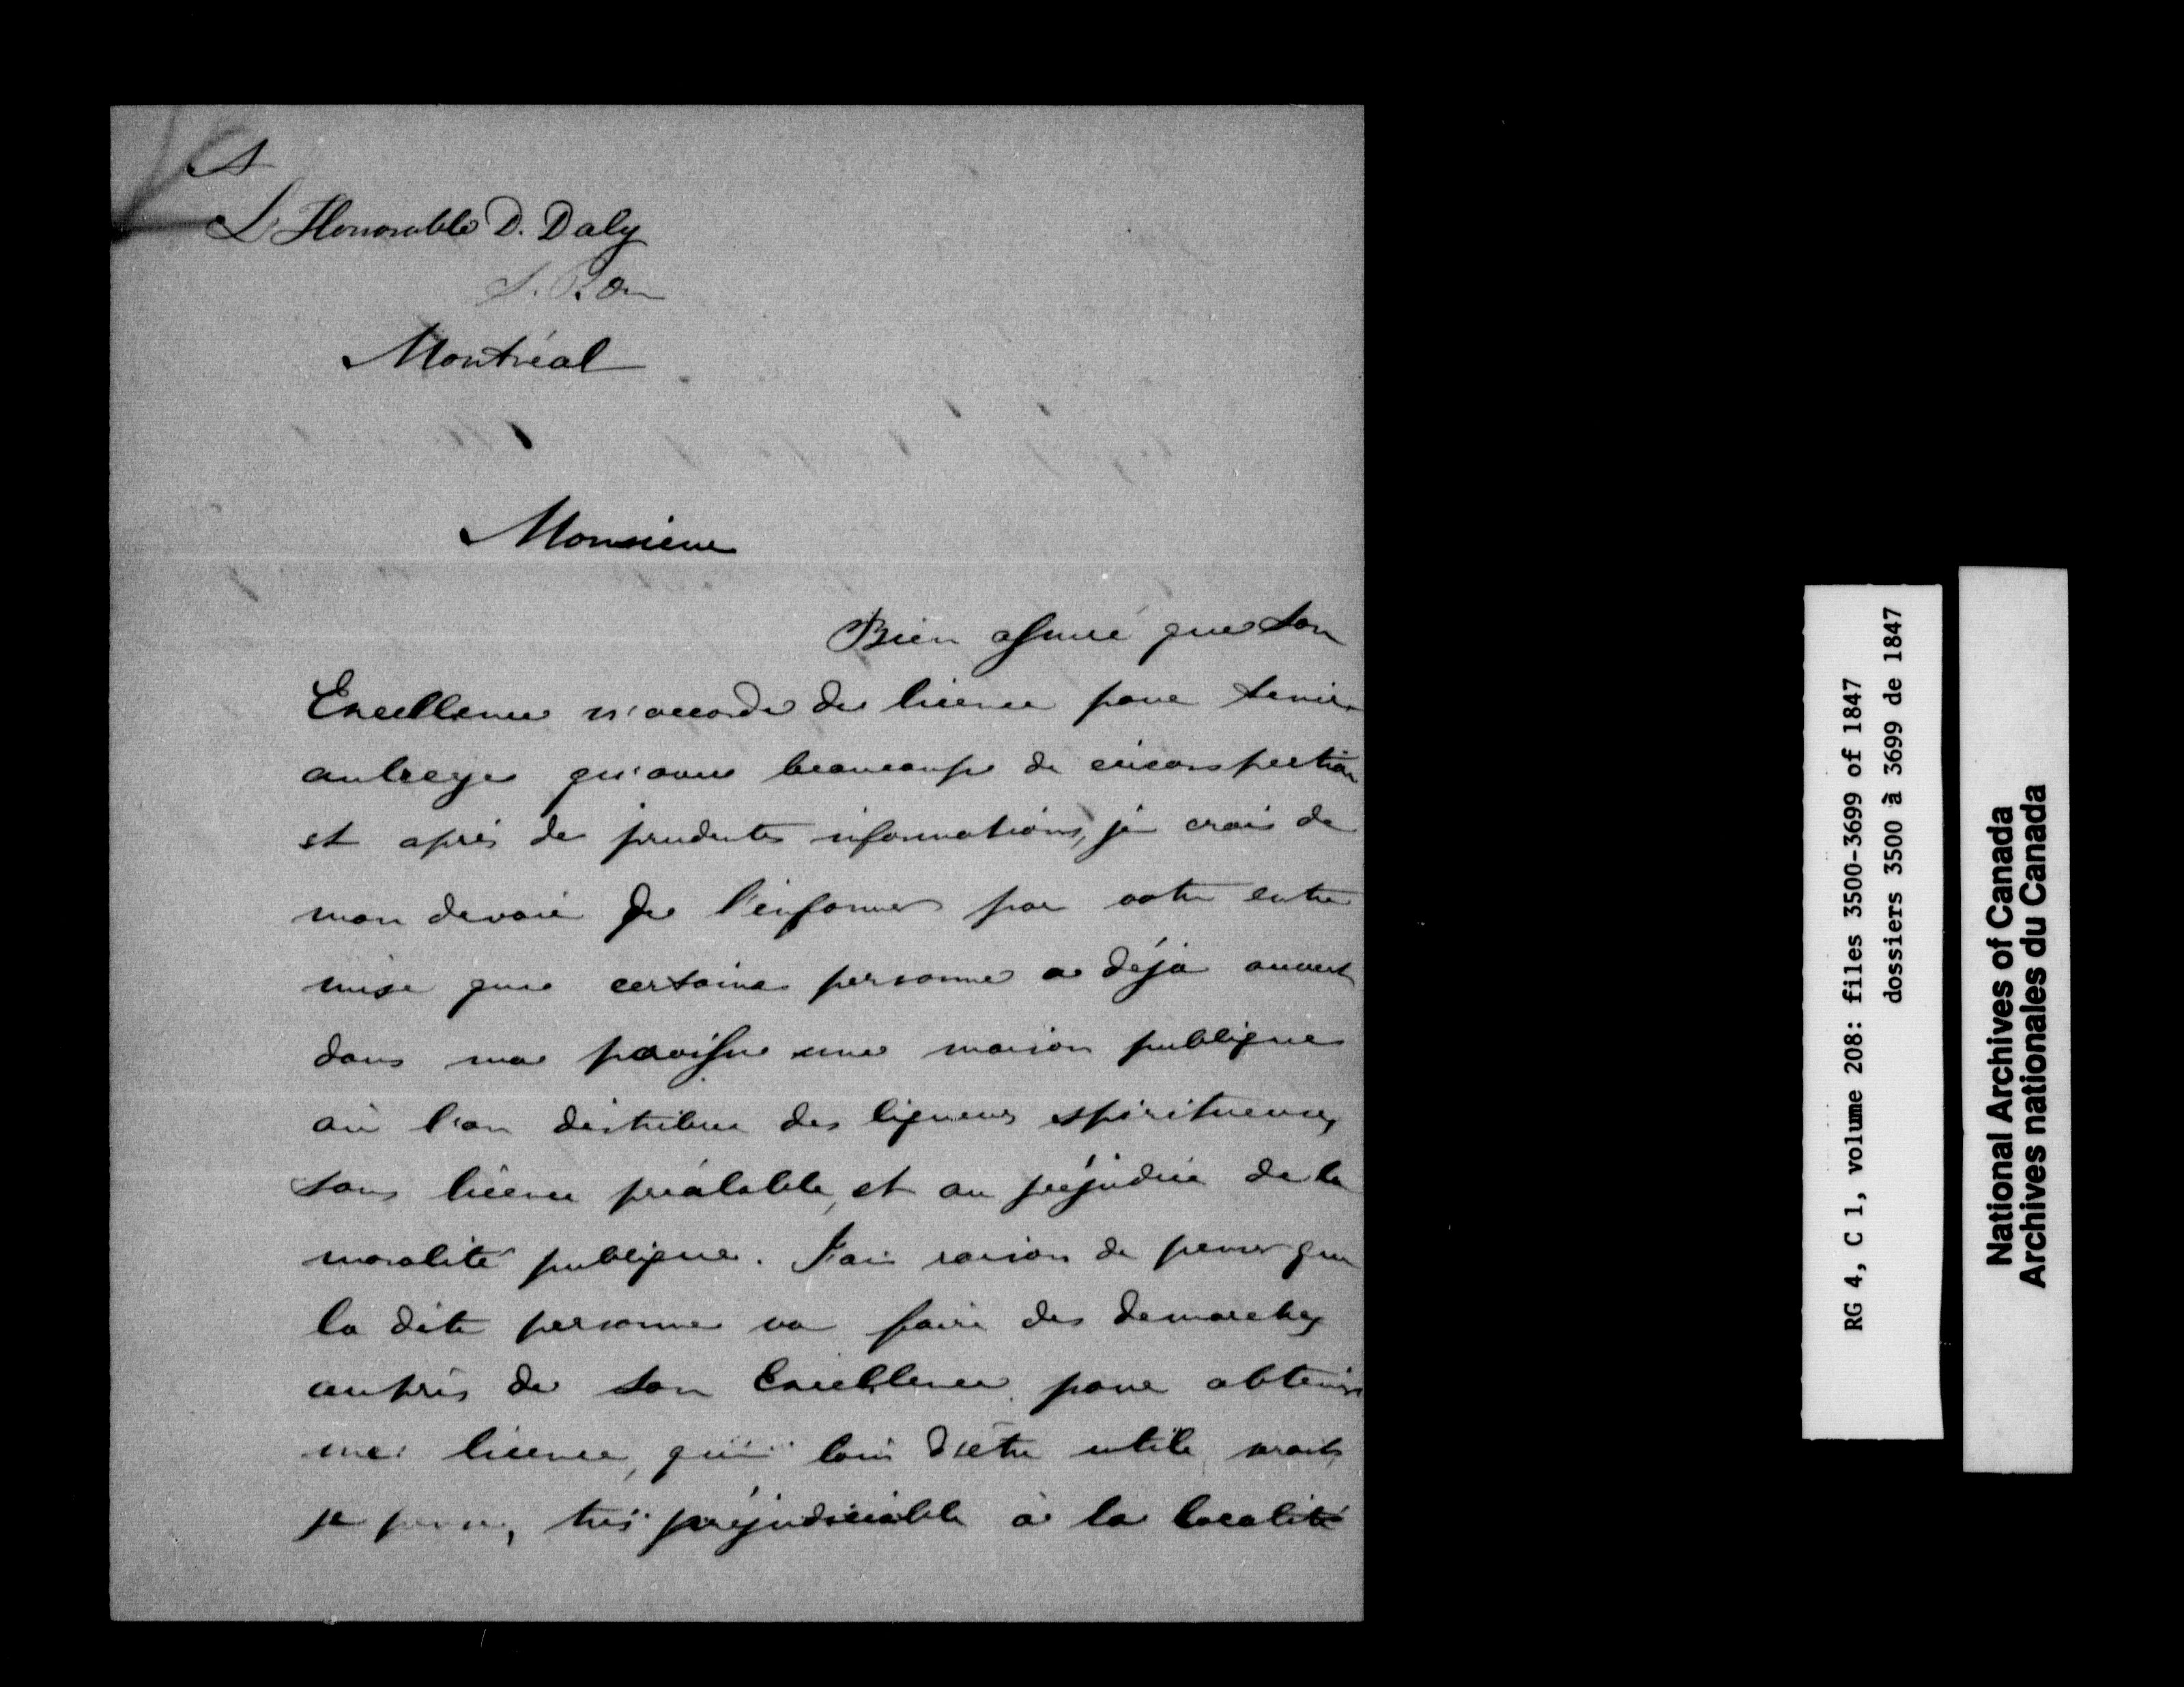 A
L'Honorable D. Daly
Montréal
Monsieur
Bien assuré que Son
Excellence n'accorde des licence pour tenir
auberge qu'avec beaucoup de circonspection
et après de prudentes informations, je crois de
mon devoir de l'informer par votre entre
mise que certaine personne a déjà ouvert
dans ma paroisse une maison publique
où l'on distribue des liqueurs spiritueuses
sans licence préalable, et au préjudice de la
moralité publique. J'ai raison de penser que
la dite personne va faire des demarches
auprès de Son Excellence pour obtenir
une licence, qui loin d'être utile, serait,
je pense, très préjudiciable à la localité
RG 4, C 1, volume 208: files 3500-3699 of 1847
dossiers 3500 à 3699 de 1847
National Archives of Canada
Archives nationales du Canada